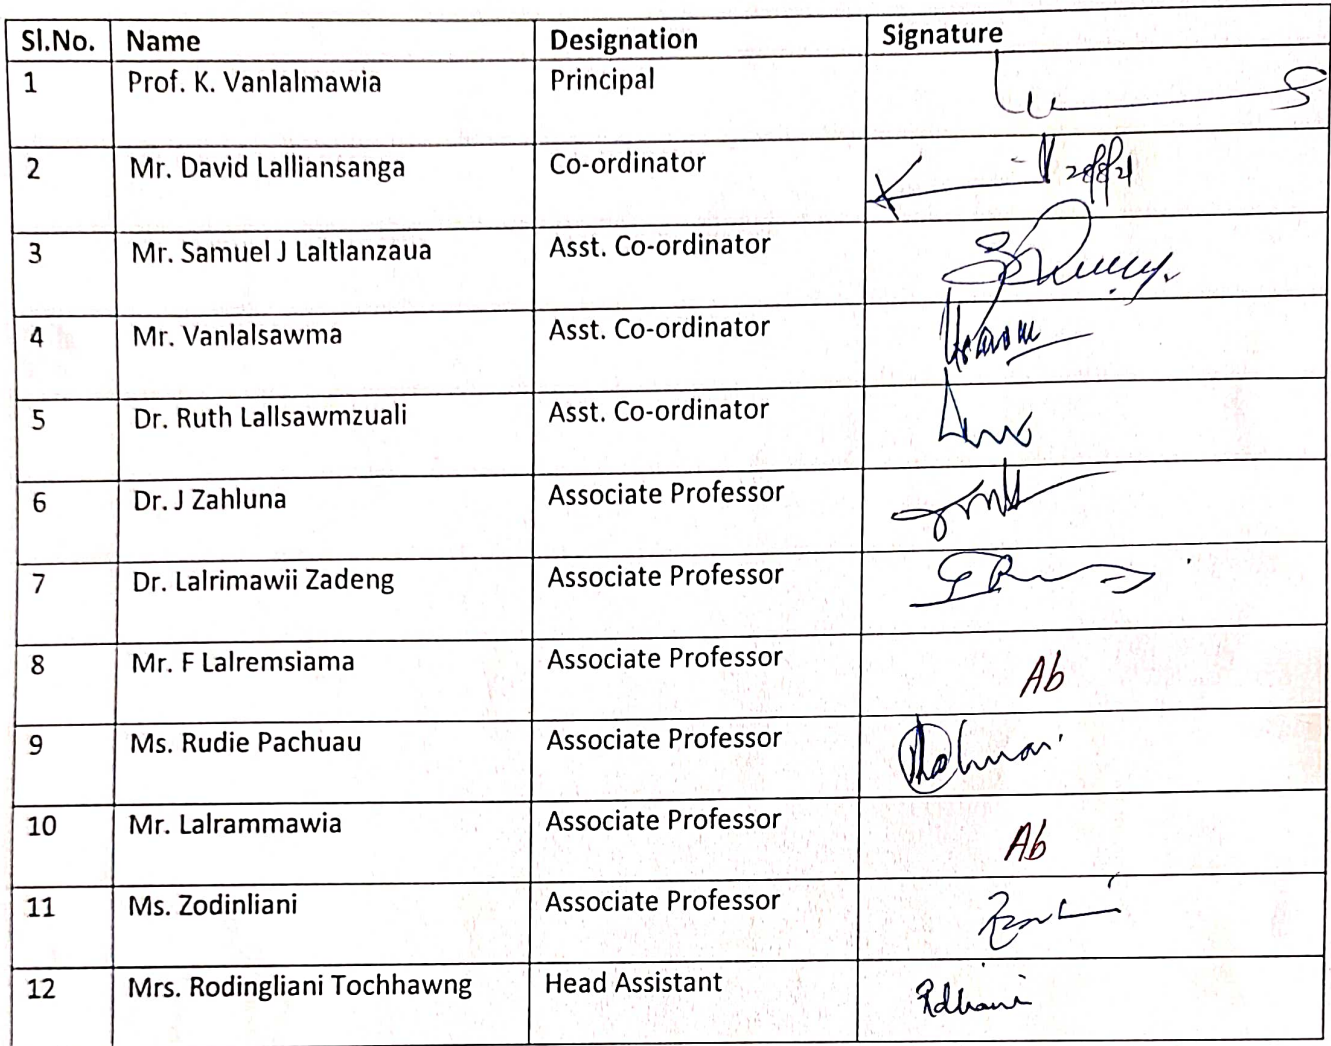 Sl.No. Name Designation Signature
1 Prof. K. Vanlalmawia Principal
2 Mr. David Lalliansanga Co-ordinator
3 Mr. Samuel J Laltlanzaua Asst. Co-ordinator
4 Mr. Vanlalsawma Asst. Co-ordinator
5 Dr. Ruth Lallsawmzuali Asst. Co-ordinator
6 Dr. J Zahluna Associate Professor
7 Dr. Lalrimawii Zadeng Associate Professor
8 Mr. F Lalremsiama Associate Professor Ab
9 Ms. Rudie Pachuau Associate Professor
10 Mr. Lalrammawia Associate Professor Ab
11 Ms. Zodinliani Associate Professor
12 Mrs. Rodingliani Tochhawng Head Assistant